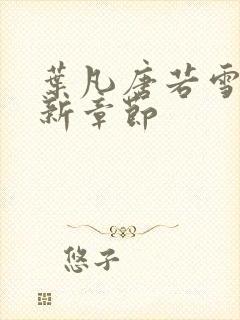 葉凡唐若雪
新章節
悠子